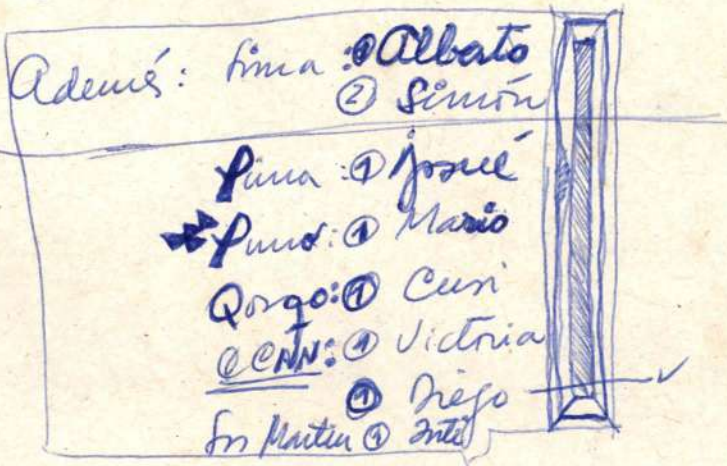 Además: Lima: ① Alberto
② Simón
Piura: ① Josué
Puno: ① Mario
Qosqo: ① Cusi
CCNN: ① Victoria
① Diego ✓
Sn Martín ① Inti